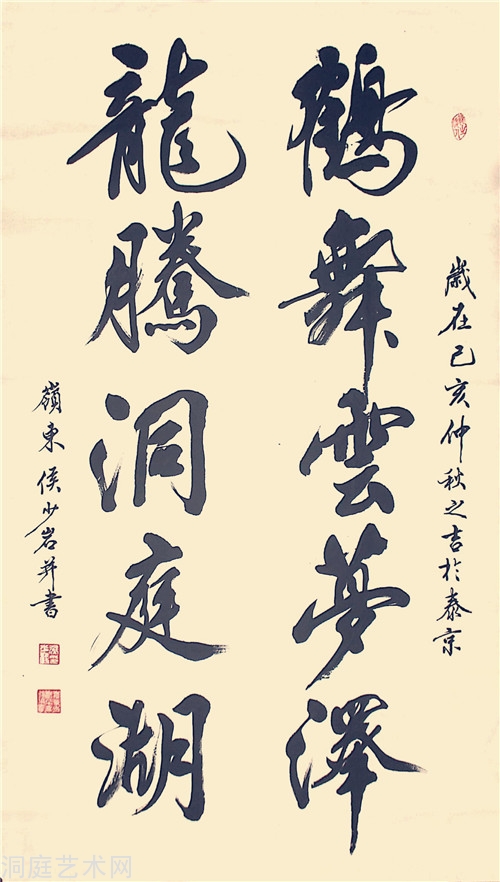 歲在己亥仲秋之吉於泰京
鶴舞雲夢澤
龍騰洞庭湖
嶺東侯少岩并書
洞庭艺术网